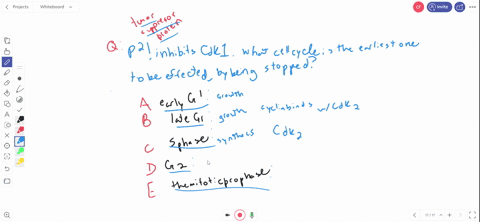 Projects
Whiteboard
Invite
tumor
suppressor
protein
Q: p21 inhibits Cdk1. What cell cycle is the earliest one
to be effected, by being stopped?
A early G1: growth
B late G1: growth cyclin binds w/ Cdk2
C S phase: synthesis Cdk2
D G2:
E the mitotic prophase